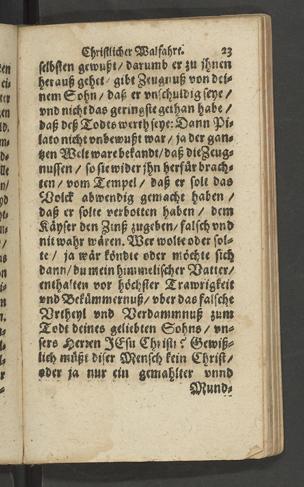 Christlicher Walfahrt. 23
selbsten gewußt / darumb er zu jhnen
herauß gehet / gibt Zeugnuß von dei-
nem Sohn / daß er vnschuldig seye /
vnd nicht das geringste gethan habe /
daß deß Todts werth seye: Dann Pi-
lato nicht vnbewußt war / ja der gan-
tzen Welt ware bekandt / daß die Zeug-
nussen / so sie wider jhn herfür brach-
ten / vom Tempel / daß er solt das
Volck abwendig gemacht haben /
daß er solte verbotten haben / dem
Käyser den Zinß zugeben / falsch vnd
nit wahr wären. Wer wolte oder sol-
te / ja wär köndte oder möchte sich
dann / du mein himmelischer Vatter /
enthalten vor höchster Trawrigkeit
vnd Bekümmernuß / vber das falsche
Vrtheyl vnd Verdammnuß zum
Todt deines geliebten Sohns / vn-
sers Herren JEsu Christi? Gewiß-
lich müßt diser Mensch kein Christ /
oder ja nur ein gemahlter vnnd
Mund-